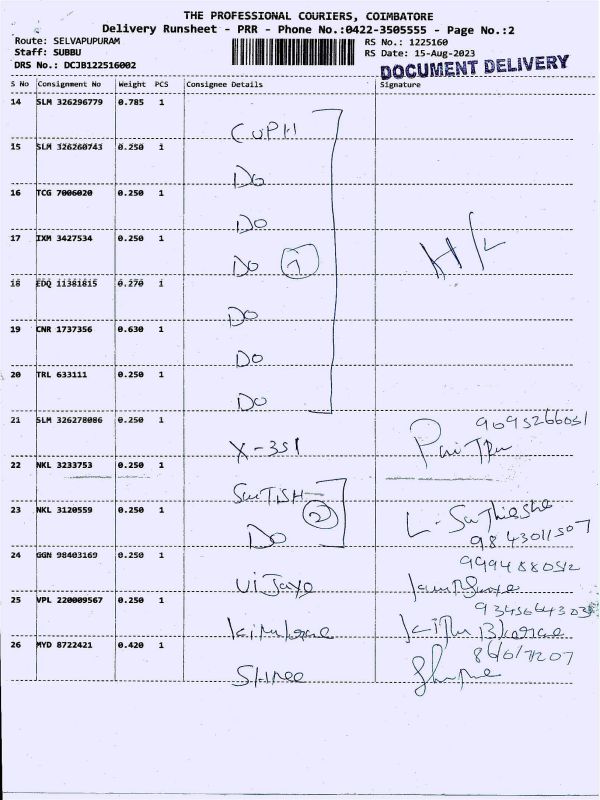 THE PROFESSIONAL COURIERS, COIMBATORE
Delivery Runsheet - PRR - Phone No.:0422-3505555 - Page No.:2
Route: SELVAPUPURAM RS No.: 1225160
Staff: SUBBU RS Date: 15-Aug-2023
DRS No.: DCJB122516002 DOCUMENT DELIVERY
S No Consignment No Weight PCS Consignee Details Signature
14 SLM 326296779 0.785 1
CUPH
15 SLM 326260743 0.250 1
Do
16 TCG 7006020 0.250 1
Do
17 IXM 3427534 0.250 1
Do 7 H/L
18 EDQ 11381815 0.270 1
Do
19 CNR 1737356 0.630 1
Do
20 TRL 633111 0.250 1
Do
21 SLM 326278086 0.250 1
X-351
22 NKL 3233753 0.250 1
SutTISH
23 NKL 3120559 0.250 1
Do 2
9843011507
24 GGN 98403169 0.250 1
9994880512
Vijaye
25 VPL 220009567 0.250 1
26 MYD 8722421 0.420 1
Shree